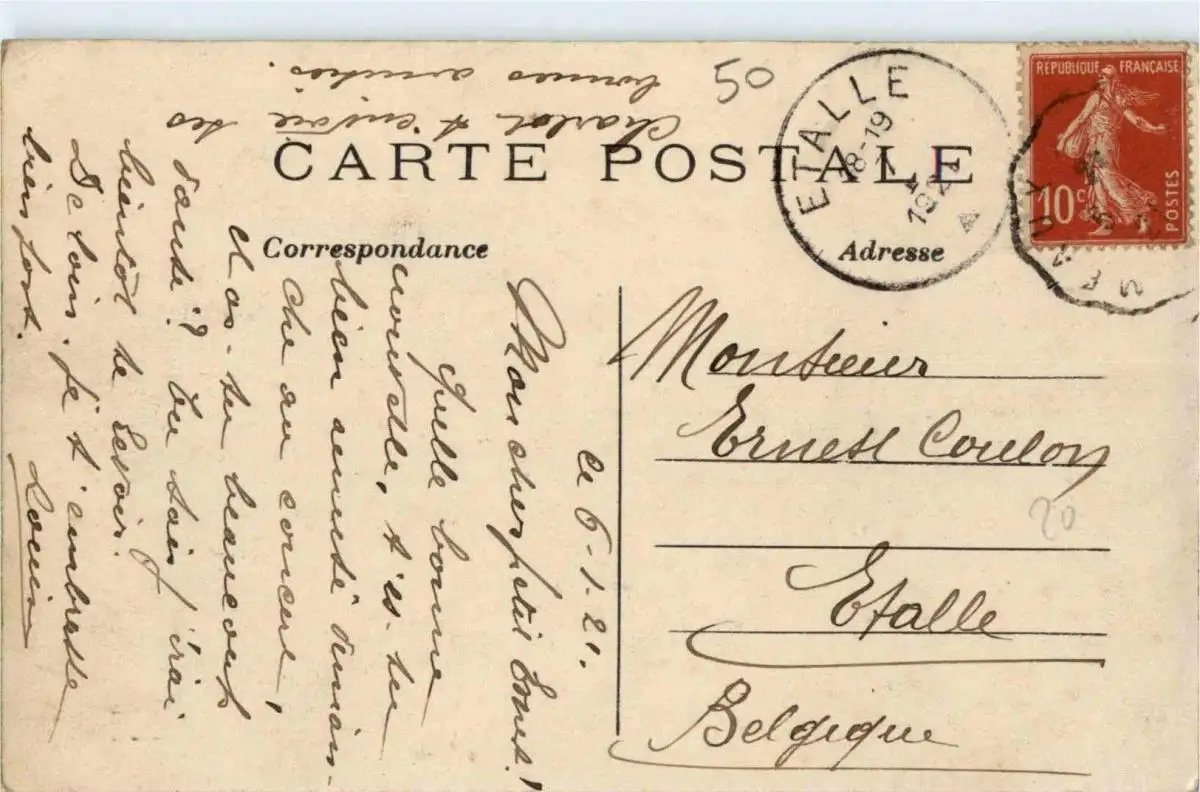 CARTE POSTALE
Correspondance
Adresse
ce 6-1-21.
Mon cher petit Ernest!
Quelle bonne
nouvelle, t'es-tu
bien amusé diman-
che au concert,
M as-tu beaucoup
dansé? Tu sais j'irai
bientôt te
De loin, je t'embrasse
bien fort.
Louis
Charlot t'envoie ses
bonnes amitiés.
50
ETALLE
8-19
1921
REPUBLIQUE FRANÇAISE
10c
POSTES
Monsieur
Ernest Coulon
20
Etalle
Belgique